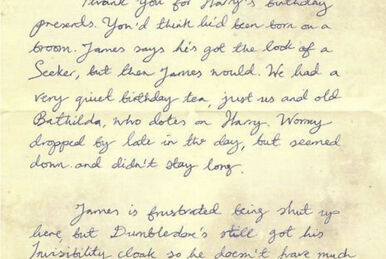 Thank you for Harry's birthday
presents. You'd think he'd been born on a
broom. James says he's got the look of a
Seeker, but then James would. We had a
very quiet birthday tea, just us and old
Bathilda, who dotes on Harry. Wormy
dropped by late in the day, but seemed
down and didn't stay long.
James is frustrated being shut up
here but Dumbledore's still got his
Invisibility cloak so he doesn't have much